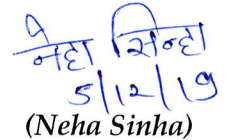 नेहा सिन्हा
5/12/19
(Neha Sinha)